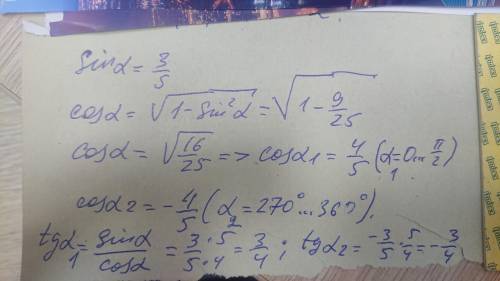 sinα = 3/5
cosα = √(1-sin²α) = √(1 - 9/25)
cosα = √(16/25) => cosα1 = 4/5 (α1=0...π/2)
cosα2 = -4/5 (α2=270°...360°).
tgα1 = sinα/cosα = 3/5 · 5/4 = 3/4; tgα2 = -3/5 · 5/4 = -3/4